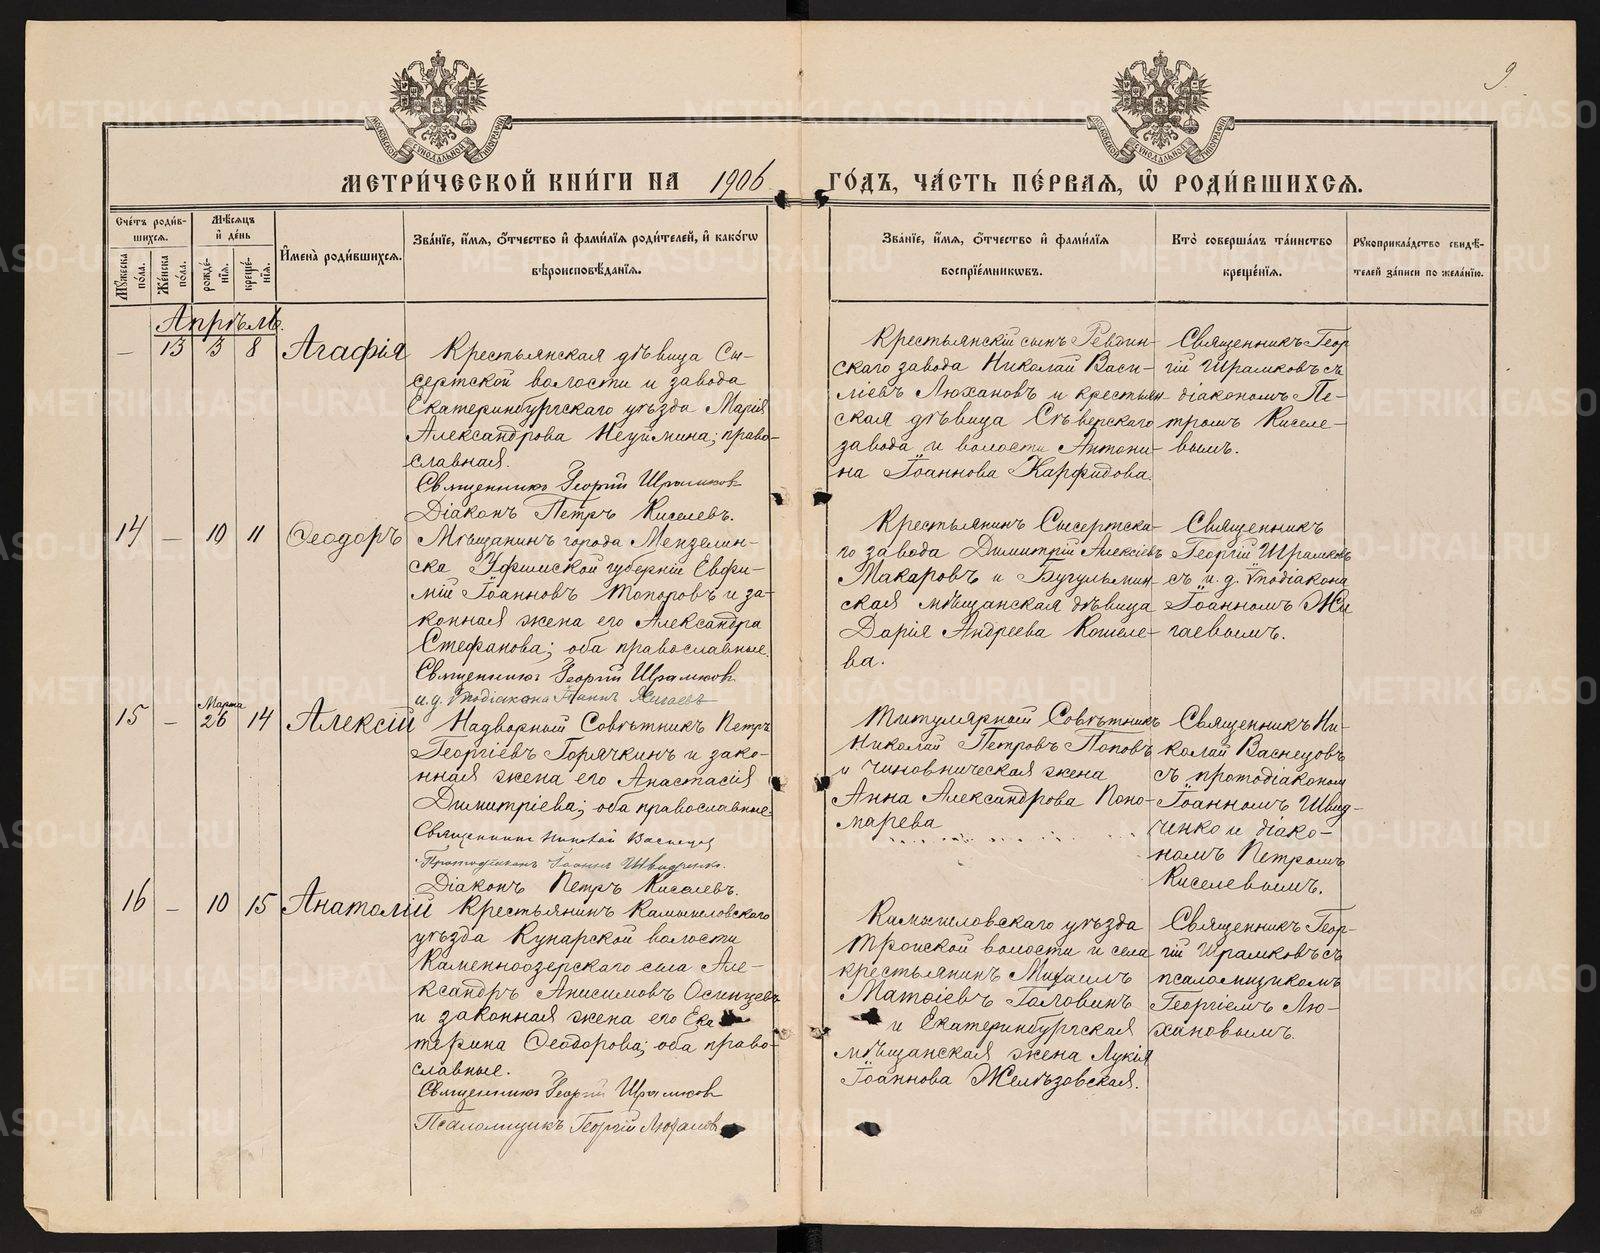 9.
МЕТРИ́ЧЕСКОЙ КНИ́ГИ НА 1906 ГО́ДЪ, ЧА́СТЬ ПЕ́РВАЯ, Ѡ РОДИ́ВШИХСЯ.
Сче́тъ роди́в-
шихся.
Му́жеска по́ла.
Же́нска по́ла.
Мѣсяцъ
и де́нь
рожде́-
нїя.
креще́-
нїя.
Имена̀ роди́вшихся.
Зва́нїе, и́мя, о́тчество и фами́лїя роди́телей, и како́гѡ
вѣроисповѣ́данїя.
Зва́нїе, и́мя, о́тчество и фами́лїя
воспрїе́мниковъ.
Кто̀ соверша́лъ та́инство
креще́нїя.
Рукоприкла́дство свидѣ́-
телей за́писи по жела́нїю.
Апрѣль.
— 13 3 8 Агафія
Крестьянская дѣвица Сы-
сертской волости и завода
Екатеринбургскаго уѣзда Марія
Александрова Неуймина; право-
славная.
Священникъ Георгій Шрамковъ
Діаконъ Петръ Киселевъ.
Крестьянскій сынъ Ревдин-
скаго завода Николай Васи-
ліевъ Люхановъ и крестьян-
ская дѣвица Сѣверскаго
завода и волости Антони-
на Іоаннова Карфидова.
Священникъ Геор
гій Шрамковъ съ
діакономъ Пе-
тромъ Киселе-
вымъ.
14 — 10 11 Ѳеодоръ
Мѣщанинъ города Мензелин-
ска Уфимской губерніи Евфи-
мій Іоанновъ Топоровъ и за-
конная жена его Александра
Стефанова; оба православные.
Священникъ Георгій Шрамковъ
и.д. Υподіакона Іоаннъ Жигаевъ
Крестьянинъ Сысертска-
го завода Димитрій Алексіевъ
Макаровъ и Бугульмин-
ская мѣщанская дѣвица
Дарія Андреева Кошеле-
ва.
Священникъ
Георгій Шрамковъ
съ и.д. Υподіакона
Іоанномъ Жи
гаевымъ.
15 — Марта 26 14 Алексій
Надворный Совѣтникъ Петръ
Георгіевъ Горячкинъ и зако-
нная жена его Анастасія
Димитріева; оба православные
Священникъ Николай Васнецов
Протодіаконъ Іоаннъ Швидченко.
Діаконъ Петръ Киселевъ.
Титулярный Совѣтникъ
Николай Петровъ Поповъ
и чиновническая жена
Анна Александрова Поно-
марева
Священникъ Ни-
колай Васнецовъ
съ протодіакономъ
Іоанномъ Швид-
ченко и діако-
номъ Петромъ
Киселевымъ.
16 — 10 15 Анатолій
Крестьянинъ Камышловскаго
уѣзда Кунарской волости
Каменноозерскаго села Але-
ксандръ Анисимовъ Осинцевъ
и законная жена его Ека
терина Ѳеодорова; оба право-
славные.
Священникъ Георгій Шрамковъ
Псаломщикъ Георгій Люханов
Камышловскаго уѣзда
Троицкой волости и села
крестьянинъ Михаилъ
Матѳіевъ Головинъ
и Екатеринбургская
мѣщанская жена Лукія
Іоаннова Желѣзовская.
Священникъ Геор-
гій Шрамковъ съ
псаломщикомъ
Георгіемъ Лю-
хановымъ.
METRIKI.GASO-URAL.RU